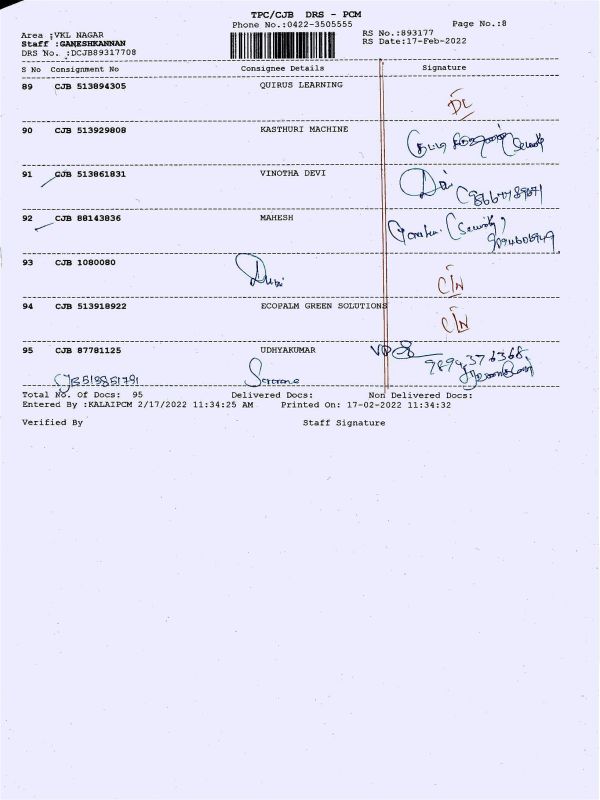 TPC/CJB DRS - PCM
Phone No.:0422-3505555 Page No.:8
Area :VKL NAGAR RS No.:893177
Staff :GANESHKANNAN RS Date:17-Feb-2022
DRS No. :DCJB89317708
S No Consignment No Consignee Details Signature
89 CJB 513894305 QUIRUS LEARNING
DL
90 CJB 513929808 KASTHURI MACHINE
91 CJB 513861831 VINOTHA DEVI
92 CJB 88143836 MAHESH
(Security)
93 CJB 1080080
C/N
94 CJB 513918922 ECOPALM GREEN SOLUTIONS
C/N
95 CJB 87781125 UDHYAKUMAR
9894376368
CJB519851791
Total No. Of Docs: 95 Delivered Docs: Non Delivered Docs:
Entered By :KALAIPCM 2/17/2022 11:34:25 AM Printed On: 17-02-2022 11:34:32
Verified By Staff Signature